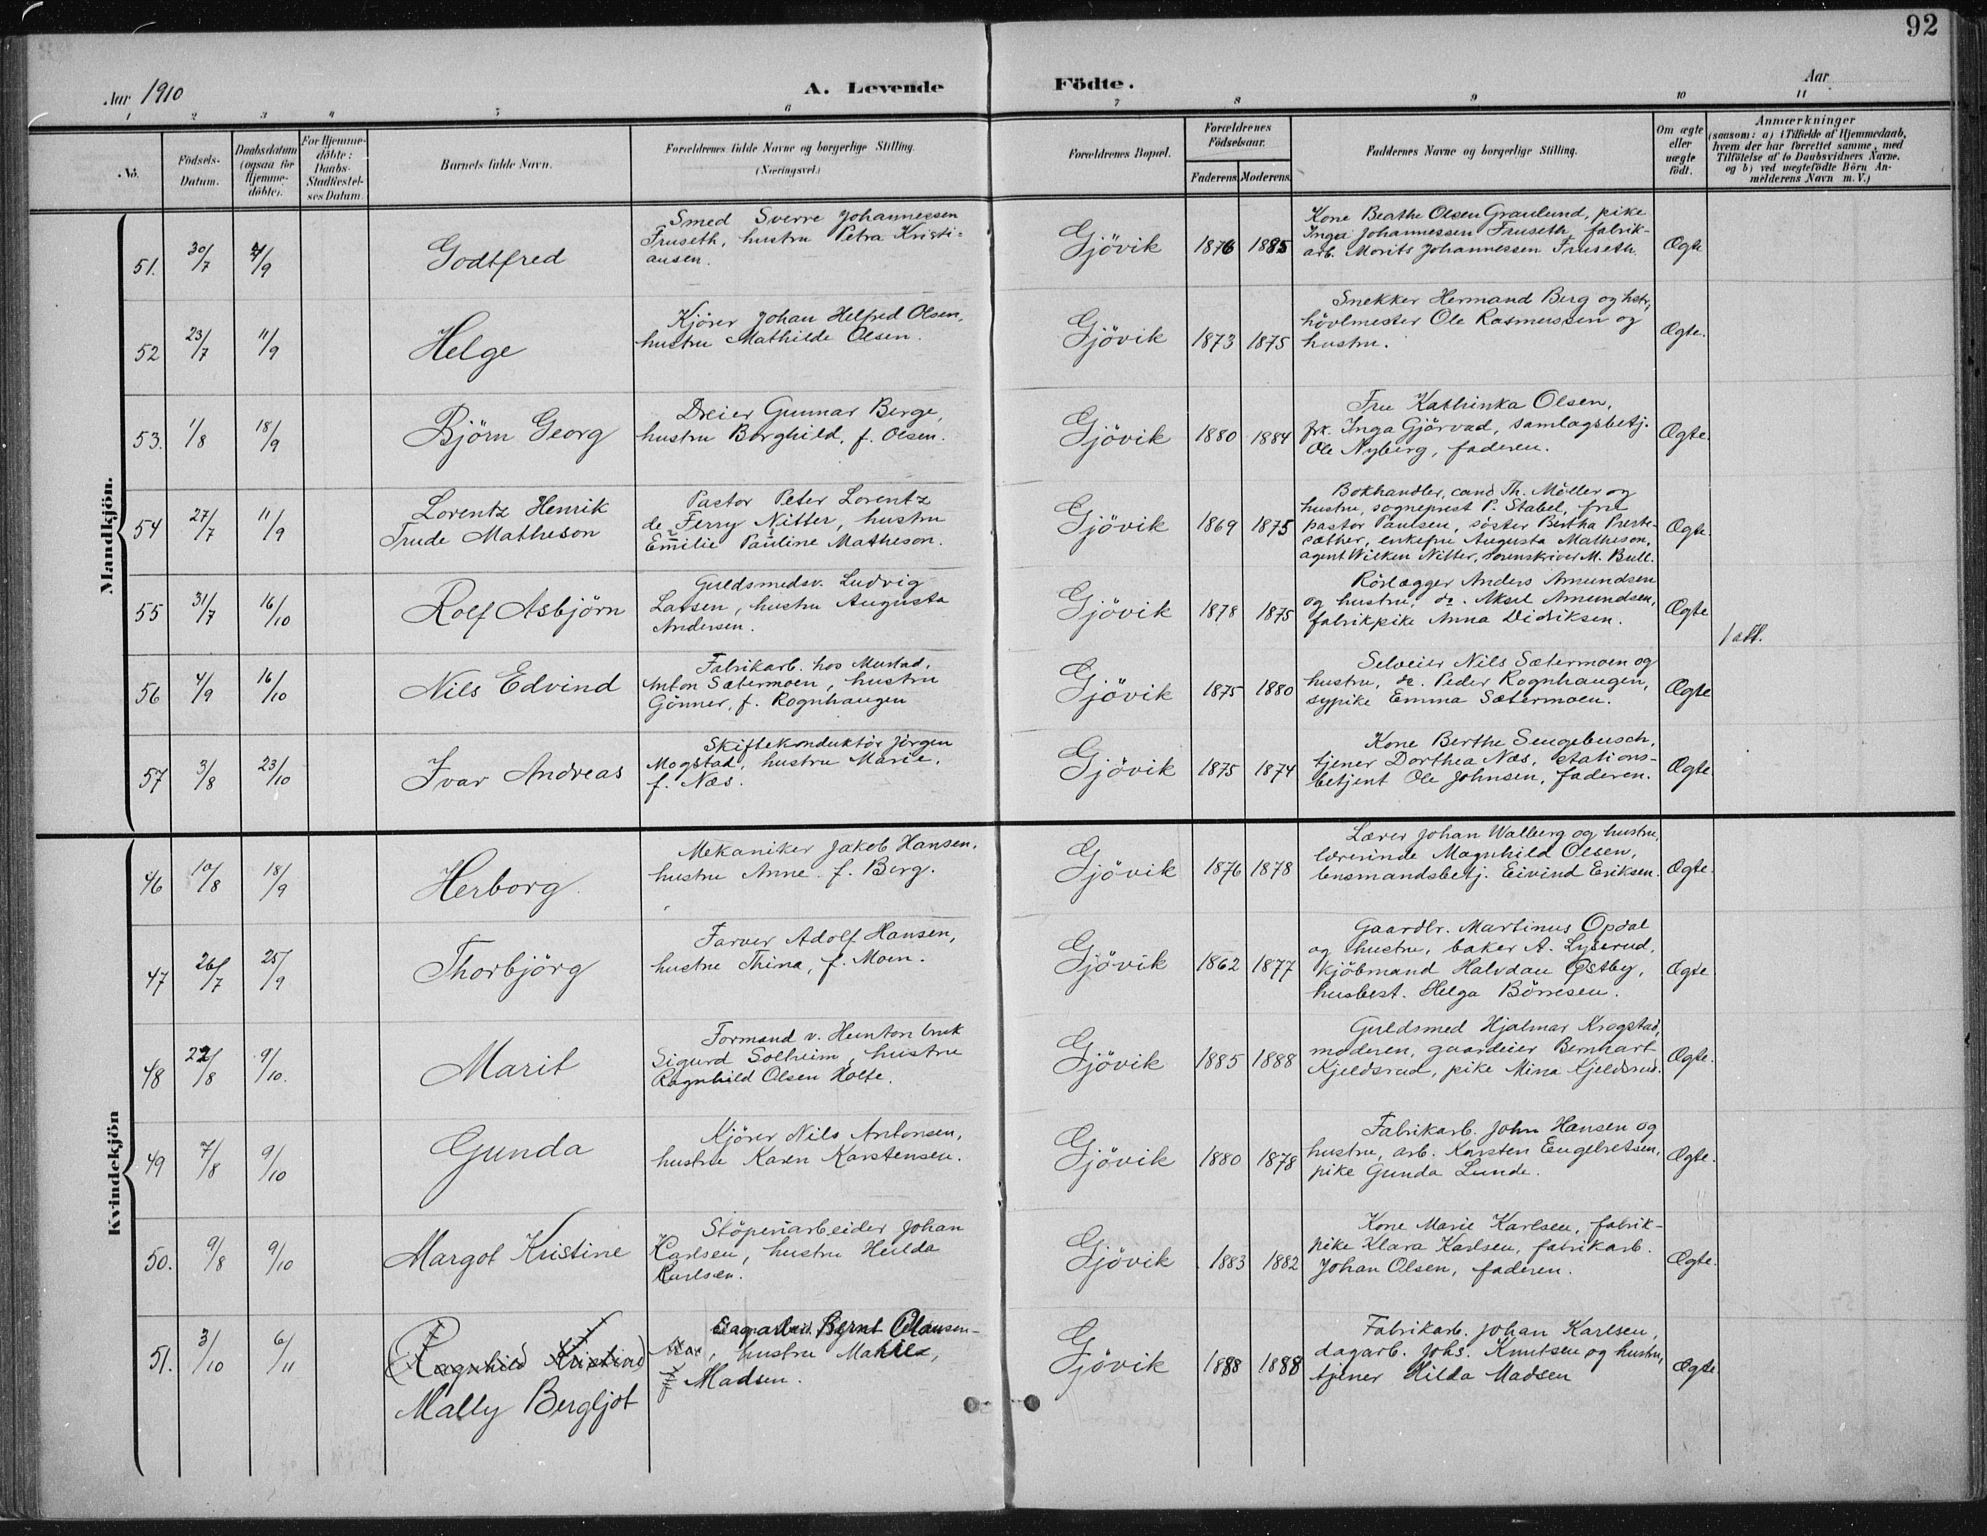 92
Aar 1910
A. Levende Födte.
Aar
1 2 3 4 5 6 7 8 9 10 11
No.
Födsels-
Datum.
Daabsdatum
(ogsaa for
Hjemme-
döbte).
For Hjemme-
döbte:
Daabs-
Stadfæstel-
ses Datum.
Barnets fulde Navn.
Forældrenes fulde Navne og borgerlige Stilling.
(Næringsvei.)
Forældrenes Bopæl.
Forældrenes
Fødselsaar.
Faderens. Moderens.
Faddernes Navne og borgerlige Stilling.
Om ægte
eller
uægte
födt.
Anmærkninger
(saasom: a) i Tilfælde af Hjemmedaab,
hvem der har forrettet samme, med
Tilföielse af to Daabsvidners Navne,
og b) ved uægtefödte Börn An-
melderens Navn m. V.)
Mandkjön.
51. 30/7 4/9 Godtfred
Smed Sverre Johannessen
Fruseth, hustru Petra Kristi-
ansen.
Gjövik 1876 1885
Kone Beathe Olsen Granlund, pike
Inga Johannessen Fruseth, fabrik-
arb. Morits Johannessen Fruseth.
Ægte
52 23/7 11/9 Helge
Kjörer Johan Helfred Olsen,
hustru Mathilde Olsen.
Gjövik 1873 1875
Snekker Hermand Berg og hstr,
hövlmester Ole Rasmussen og
hustru.
Ægte.
53. 1/8 18/9 Björn Georg
Dreier Gunnar Berge,
hustru Borghild, f. Olsen.
Gjövik 1880 1884
Fru Kathinka Olsen,
frk. Inga Gjörvad, samlagsbetj.
Ole Nyberg, faderen.
Ægte.
54 27/7 11/9 Lorentz Henrik
Trude Matheson
Pastor Peter Lorentz
de Ferry Nitter, hustru
Emilie Pauline Matheson.
Gjövik 1869 1875
Bokhandler, cand. Th. Möller og
hustru, sogneprest P. Stabel, fru
pastor Paulsen, söster Bertha Preste-
sæther, enkefru Augusta Matheson,
agent Wilken Nitter, sorenskriver M. Bull.
Ægte.
55 31/7 16/10 Rolf Asbjörn
Guldsmedsv. Ludvig
Larsen, hustru Augusta
Andersen.
Gjövik 1878 1875
Rörlægger Anders Amundsen
og hustru, do. Aksel Amundsen,
fabrikpike Anna Didriksen.
Ægte
1 att.
56 4/9 16/10 Nils Edvind
Fabrikarb. hos Mustad,
Anton Sætermoen, hustru
Gönner, f. Rognhaugen
Gjövik 1875 1880
Selveier Nils Sætermoen og
hustru, do. Peder Rognhaugen,
sypike Emma Sætermoen.
Ægte
57 3/8 23/10 Ivar Andreas
Skiftekonduktör Jörgen
Mogstad, hustru Marie,
f. Næs.
Gjövik 1875 1874
Kone Berthe Sengebusch,
tjener Dorthea Næs, stations-
betjent Ole Johnsen, faderen.
Ægte.
Kvindekjön
46 10/8 18/9 Herborg.
Mekaniker Jakob Hansen,
hustru Anne f. Berg.
Gjövik 1876 1878
Lærer Johan Walberg og hustru,
lærerinde Magnhild Olsen,
lensmandsbetj. Eivind Eriksen.
Ægte.
47 26/7 25/9 Thorbjörg
Farver Adolf Hansen,
hustru Thina, f. Moen.
Gjövik 1862 1877
Gaardbr. Martinus Opdal
og hustru, baker A. Lyserud,
kjöbmand Halvdan Østby,
husbest. Helga Börresen.
Ægte
48 22/8 9/10. Marit
Formand v. Hunton bruk
Sigurd Solheim, hustru
Ragnhild Olsen Holte.
Gjövik 1885 1888
Guldsmed Hjalmar Krogstad,
moderen, gaardeier Bernhart
Kjeldsrud, pike Mina Kjeldsrud.
Ægte.
49 7/8 9/10 Gunda
Kjörer Nils Antonsen,
hustru Karen Karstensen.
Gjövik 1880 1878
Fabrikarb. John Hansen og
hustru, arb. Karsten Engebretsen,
pike Gunda Lunde.
Ægte.
50. 9/8 9/10 Margot Kristine
Stöperiarbeider Johan
Karlsen, hustru Hulda
Karlsen.
Gjövik 1883 1882
Kone Marie Karlsen, fabrik-
pike Klara Karlsen, fabrikarb.
Johan Olsen, faderen.
Ægte.
51. 3/10 6/11 (Ragnhild Kristine)
Mally Bergljot
Bernt Olausen
hustru
Madsen.
Gjövik 1888 1888
Fabrikarb. Johan Karlsen,
dagarb. Johs. Knutsen og hustru,
tjener Hilda Madsen
Ægte.